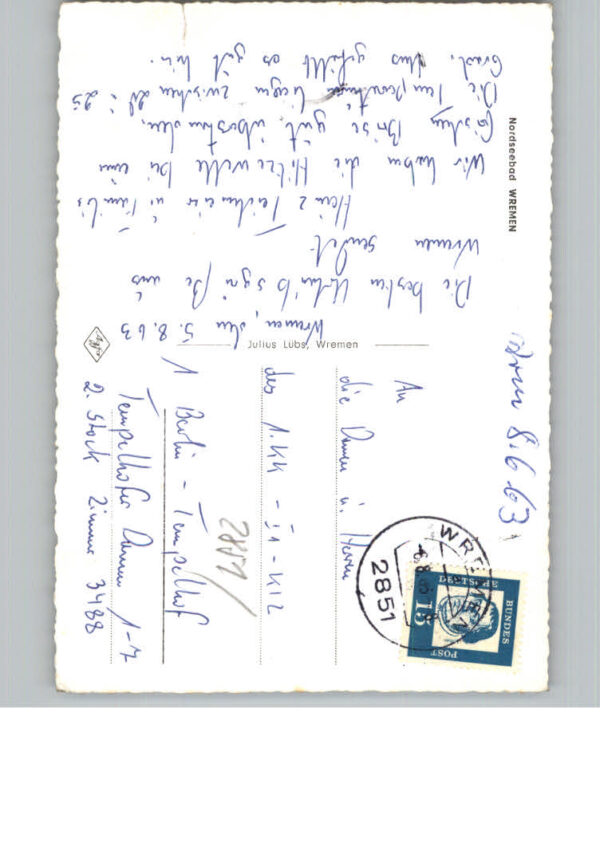 Nordseebad WREMEN
Wremen, den 5.8.63
Die besten Urlaubsgrüße aus
Wremen sendet
Heinz u. Familie
Wir haben die Hitzewelle bei einer
frischen Brise gut überstanden.
Die Temperaturen liegen zwischen 20 : 25
Grad. Uns gefällt es gut hier.
Julius Lübs, Wremen
8.6.63
An
die Damen u. Herren
des 1.KK - I1 - K12
1 Berlin - Tempelhof
Tempelhofer Damm 1-7
2. Stock Zimmer 3488
2851
WREMEN
2851
DEUTSCHE
BUNDES
POST
15